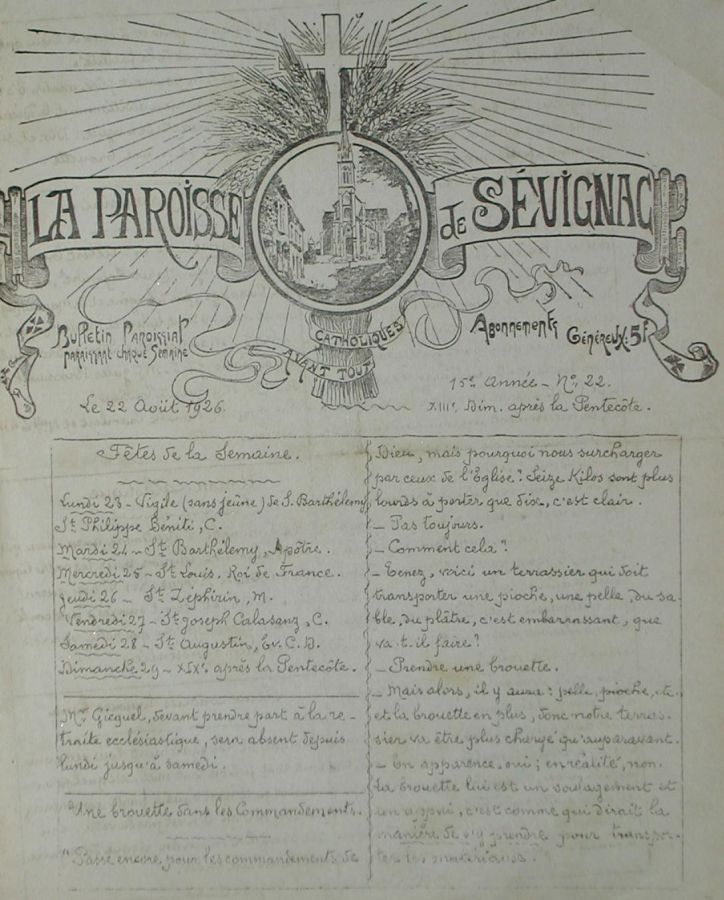 LA PAROISSE de SÉVIGNAC
Bulletin Paroissial
paraissant chaque Semaine
CATHOLIQUES
AVANT TOUT
Abonnements Généreux: 5f
Le 22 Août 1926.
15e Année - No. 22.
XIIIe. Dim. après la Pentecôte.
Fêtes de la Semaine.
Lundi 23 - Vigile (sans jeûne) de S. Barthélemy
St Philippe Béniti, C.
Mardi 24 - St Barthélemy, Apôtre.
Mercredi 25 - St Louis, Roi de France.
Jeudi 26 - St Zéphirin, M.
Vendredi 27 - St Joseph Calasanz, C.
Samedi 28 - St Augustin, Ev. C. D.
Dimanche 29 - XIXe. après la Pentecôte.
Mr Gicquel, devant prendre part à la re-
traite ecclésiastique, sera absent depuis
lundi jusqu'à samedi.
Une brouette dans les Commandements.
Passe encore pour les commandements de
Dieu, mais pourquoi nous surcharger
par ceux de l'Église? Seize Kilos sont plus
lourds à porter que dix, c'est clair.
- Pas toujours.
- Comment cela?
- Tenez, voici un terrassier qui doit
transporter une pioche, une pelle, du sa-
ble, du plâtre, c'est embarrassant, que
va-t-il faire?
- Prendre une brouette.
- Mais alors, il y aura: pelle, pioche, etc.
et la brouette en plus, donc notre terras-
sier va être plus chargé qu'auparavant.
- En apparence, oui; en réalité, non.
La brouette lui est un soulagement et
un appui, c'est comme qui dirait la
manière de s'y prendre pour transpor-
ter les matériaux.